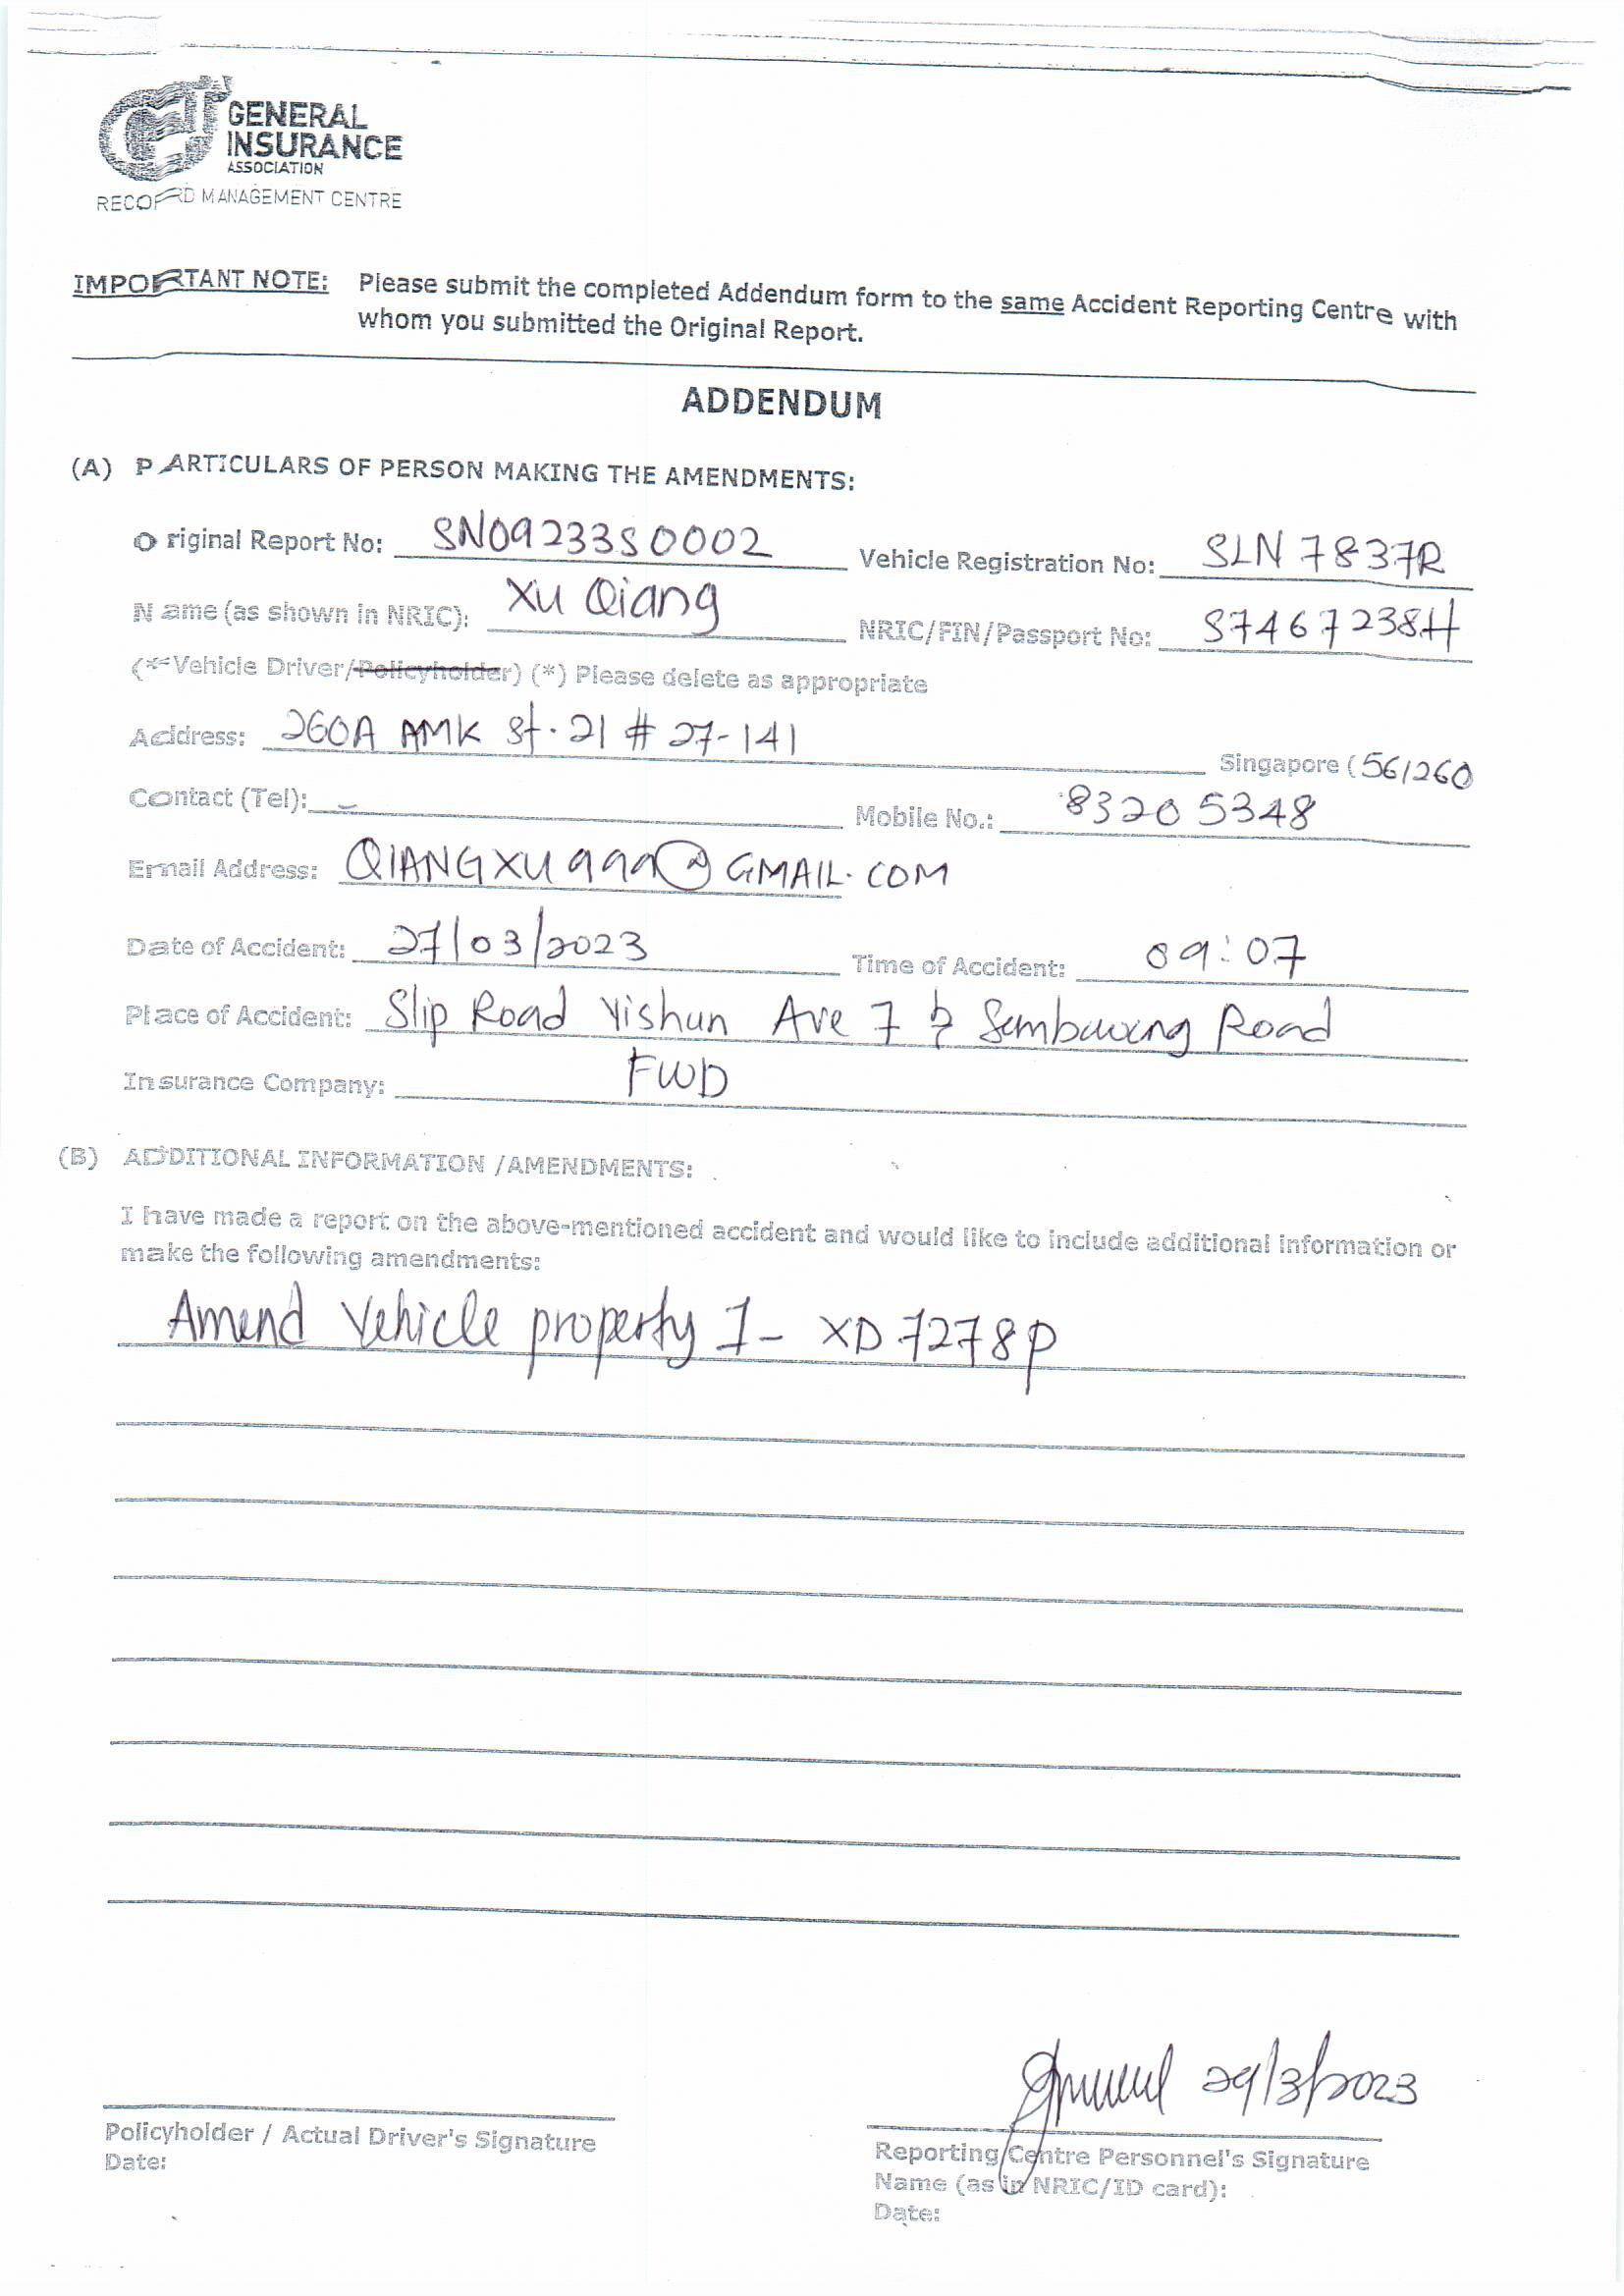 GENERAL
INSURANCE
ASSOCIATION
RECORD MANAGEMENT CENTRE
IMPORTANT NOTE: Please submit the completed Addendum form to the same Accident Reporting Centre with
whom you submitted the Original Report.
ADDENDUM
(A) PARTICULARS OF PERSON MAKING THE AMENDMENTS:
Original Report No: SN09233S0002 Vehicle Registration No: SLN 7837R
Name (as shown in NRIC): Xu Qiang NRIC/FIN/Passport No: S7467238H
(*Vehicle Driver/Policyholder) (*) Please delete as appropriate
Address: 260A AMK St. 21 # 27-141 Singapore (561260
Contact (Tel): - Mobile No.: 8320 5348
Email Address: QIANGXU999@GMAIL.COM
Date of Accident: 27/03/2023 Time of Accident: 09:07
Place of Accident: Slip Road Yishun Ave 7 & Sembawang Road
Insurance Company: FWD
(B) ADDITIONAL INFORMATION /AMENDMENTS:
I have made a report on the above-mentioned accident and would like to include additional information or
make the following amendments:
Amend Vehicle property 1- XD7278P
29/3/2023
Policyholder / Actual Driver's Signature
Date:
Reporting Centre Personnel's Signature
Name (as in NRIC/ID card):
Date: